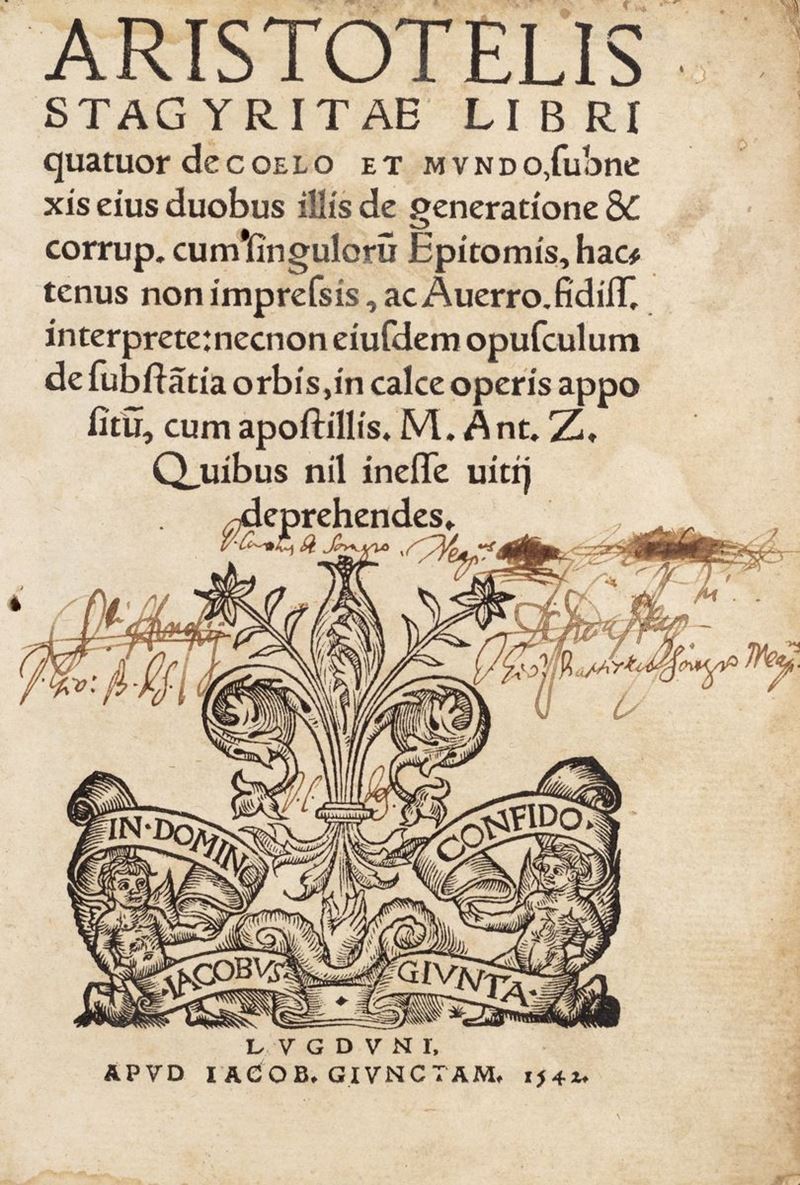 ARISTOTELIS
STAGYRITAE LIBRI
quatuor de COELO ET MVNDO, ſubne
xis eius duobus illis de generatione &
corrup. cum ſingulorū Epitomis, hac⸗
tenus non impreſsis, ac Auerro. fidiſſ.
interprete: necnon eiuſdem opuſculum
de ſubſtātia orbis, in calce operis appo
ſitū, cum apoſtillis. M. Ant. Z.
Quibus nil ineſſe uitij
deprehendes.
IN·DOMINO
CONFIDO·
·IACOBVS·
GIVNTA·
LVGDVNI,
APVD IACOB. GIVNCTAM. 1542.